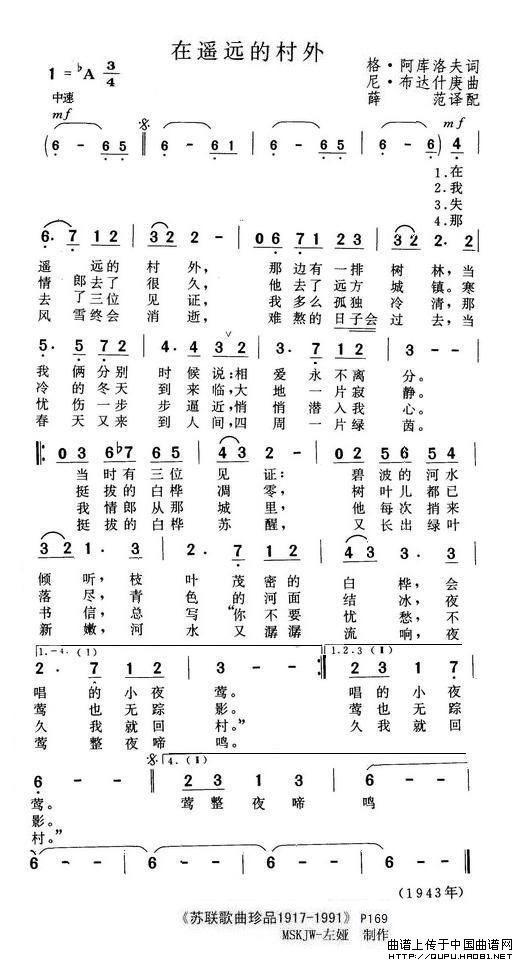 在遥远的村外
1=♭A 3/4
格·阿库洛夫词
尼·布达什庚曲
薛 范译配
中速
mf
6 - 65 6 - 61 6 - 65 6 - 6 4
mf
1.在
2.我
3.失
4.那
6. 7 12 32 2 - 06 71 23 32 2. 2
遥 远的 村 外, 那边有一排 树 林,当
情 郎去了 很 久, 他去了远方 城 镇。寒
去 了三位 见 证, 我多么孤独 冷 清,那
风 雪终会 消 逝, 难熬的日子会 过 去,当
5. 5 72 4. 4 32 3. 7 12 3 - -
我 俩分别 时 候说:相 爱 永不离 分。
冷 的冬天 到 来临,大 地 一片寂 静。
忧 伤一步 步 逼近,悄 悄 潜入我 心。
春 天又来 到 人间,四 周 一片绿 茵。
03 6♭7 65 43 2 - 02 56 54
当时有三位 见 证: 碧波的河水
挺拔的白桦 凋 零, 树叶儿都已
我情郎从那 城 里, 他每次来来
挺拔的白桦 苏 醒, 又长出绿叶
32 2. 3 2. 7 12 43 3. 3
倾 听,枝 叶 茂密的 白 桦,会
落 尽,青 色 的河面 结 冰,夜
书 信,总 写 “你不要 忧 愁,不
新 嫩,河 水 又潺潺 流 响,夜
1.-4. (1)
1.2.3 (1)
2. 7 12 3 - - 23 1 7
唱 的小夜 莺。 唱的小夜
莺 也无踪 影。 莺也无踪
久 我就回 村。” 久我就回
莺 整夜啼 鸣。
4. (1)
6 - - 23 1 3 6 - -
莺。 莺整夜啼 鸣
影。
村。”
6 - - 6 - - 6 - - 6 - -
(1943年)
《苏联歌曲珍品1917-1991》 P169
MSKJW-左娅 制作
曲谱上传于中国曲谱网
HTTP://QUPU.HAO81.NET